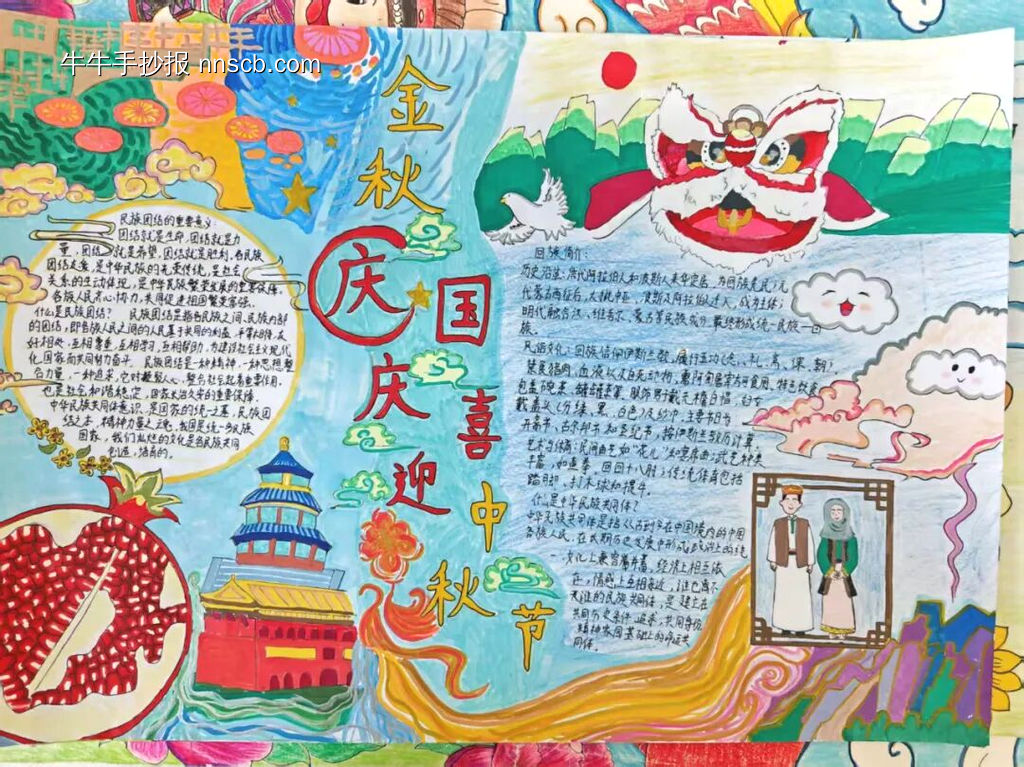 牛牛手抄报 nnscb.com
金秋
庆
国庆
喜迎
中秋
节
民族团结的重要意义:
团结就是生命,团结就是力
量,团结就是希望,团结就是胜利。各民族
团结友爱,是中华民族的光荣传统,是社会
关系的生动体现,是中华民族繁荣发展的重要保障。
各族人民齐心协力,共同促进祖国繁荣富强。
什么是民族团结? 民族团结是指各民族之间、民族内部
的团结,即各族人民之间的人民基于共同的利益,平等相待,友
好相处,互相尊重,互相学习,互相帮助,为建设社会主义现代
化国家而共同努力奋斗。民族团结是一种精神,一种思想,整
合力量,一种追求,它对凝聚人心,整合社会起着重要作用,
也是社会和谐稳定,国家长治久安的重要保障。
中华民族共同体意识,是国家的统一之基,民族团
结之本,精神力量之魂,我国是统一多民族
国家,我们灿烂的文化是各民族共同
创造,培育的。
回族简介:
历史沿革:唐代阿拉伯人和波斯人来华定居,为回族先民;元
代蒙古西征后,大批中亚、波斯及阿拉伯人迁入,成为主体;
明代融合汉、维吾尔、蒙古等民族成分,最终形成统一民族—回
族。
风俗文化:回族信仰伊斯兰教,履行五功(念、礼、斋、课、朝)
禁食猪肉,血液以及自死动物,
戴盖头(分绿、黑、白色)及纱巾,主要节日为
开斋节、古尔邦节和圣纪节,按伊斯兰教历计算,
艺术与体育:民间曲艺如"花儿"和宴席曲;武艺种类
丰富,如查拳、回回十八肘;传统体育包括
踏脚、打木球和掼牛。
什么是中华民族共同体?
中华民族共同体是指从古到今在中国境内的中国
各族人民,在长期历史发展中形成政治上的统
一,文化上兼容并蓄,经济上相互依
存,情感上互相亲近,谁也离不
开谁的民族共同体,是建立在
共同历史条件、追求、共同身份
精神家园基础上的命运共
同体。